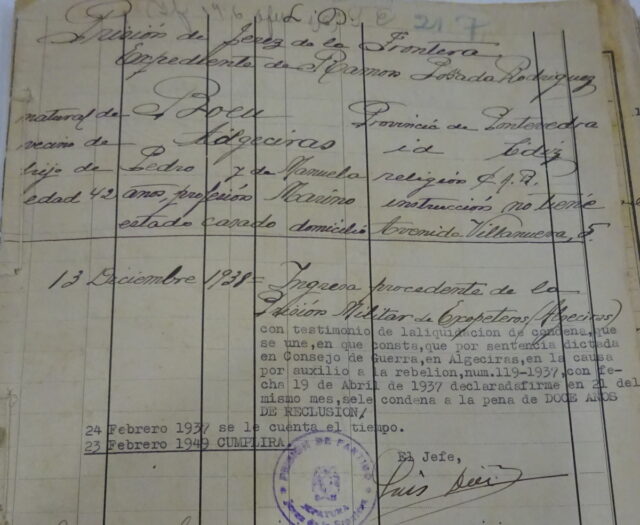 L. D.    21.7
Prisión de Jerez de la Frontera
Expediente de Ramon Posada Rodriguez
natural de Boeu Provincia de Pontevedra
vecino de Algeciras id Cadiz
hijo de Pedro y de Manuela religión C.A.R.
edad 42 años, profesión Marino instrucción no tiene
estado casado domicilio Avenida Villanueva, 5.
13 Diciembre 1938= Ingresa procedente de la
Prisión Militar de Escopeteros (Algeciras)
con testimonio de laliquidacion de condena, que
se une, en que consta, que por sentencia dictada
en Consejo de Guerra, en Algeciras, en la causa
por auxilio a la rebelion, num. 119-1937, con fe-
cha 19 de Abril de 1937 declaradafirme en 21 del
mismo mes, sele condena a la pena de DOCE AÑOS
DE RECLUSION/
24 Febrero 1937 se le cuenta el tiempo.
23 Febrero 1949 CUMPLIRA.
El Jefe,
Luis
PRISION DE PARTIDO
JEFATURA
Jerez de la Frontera